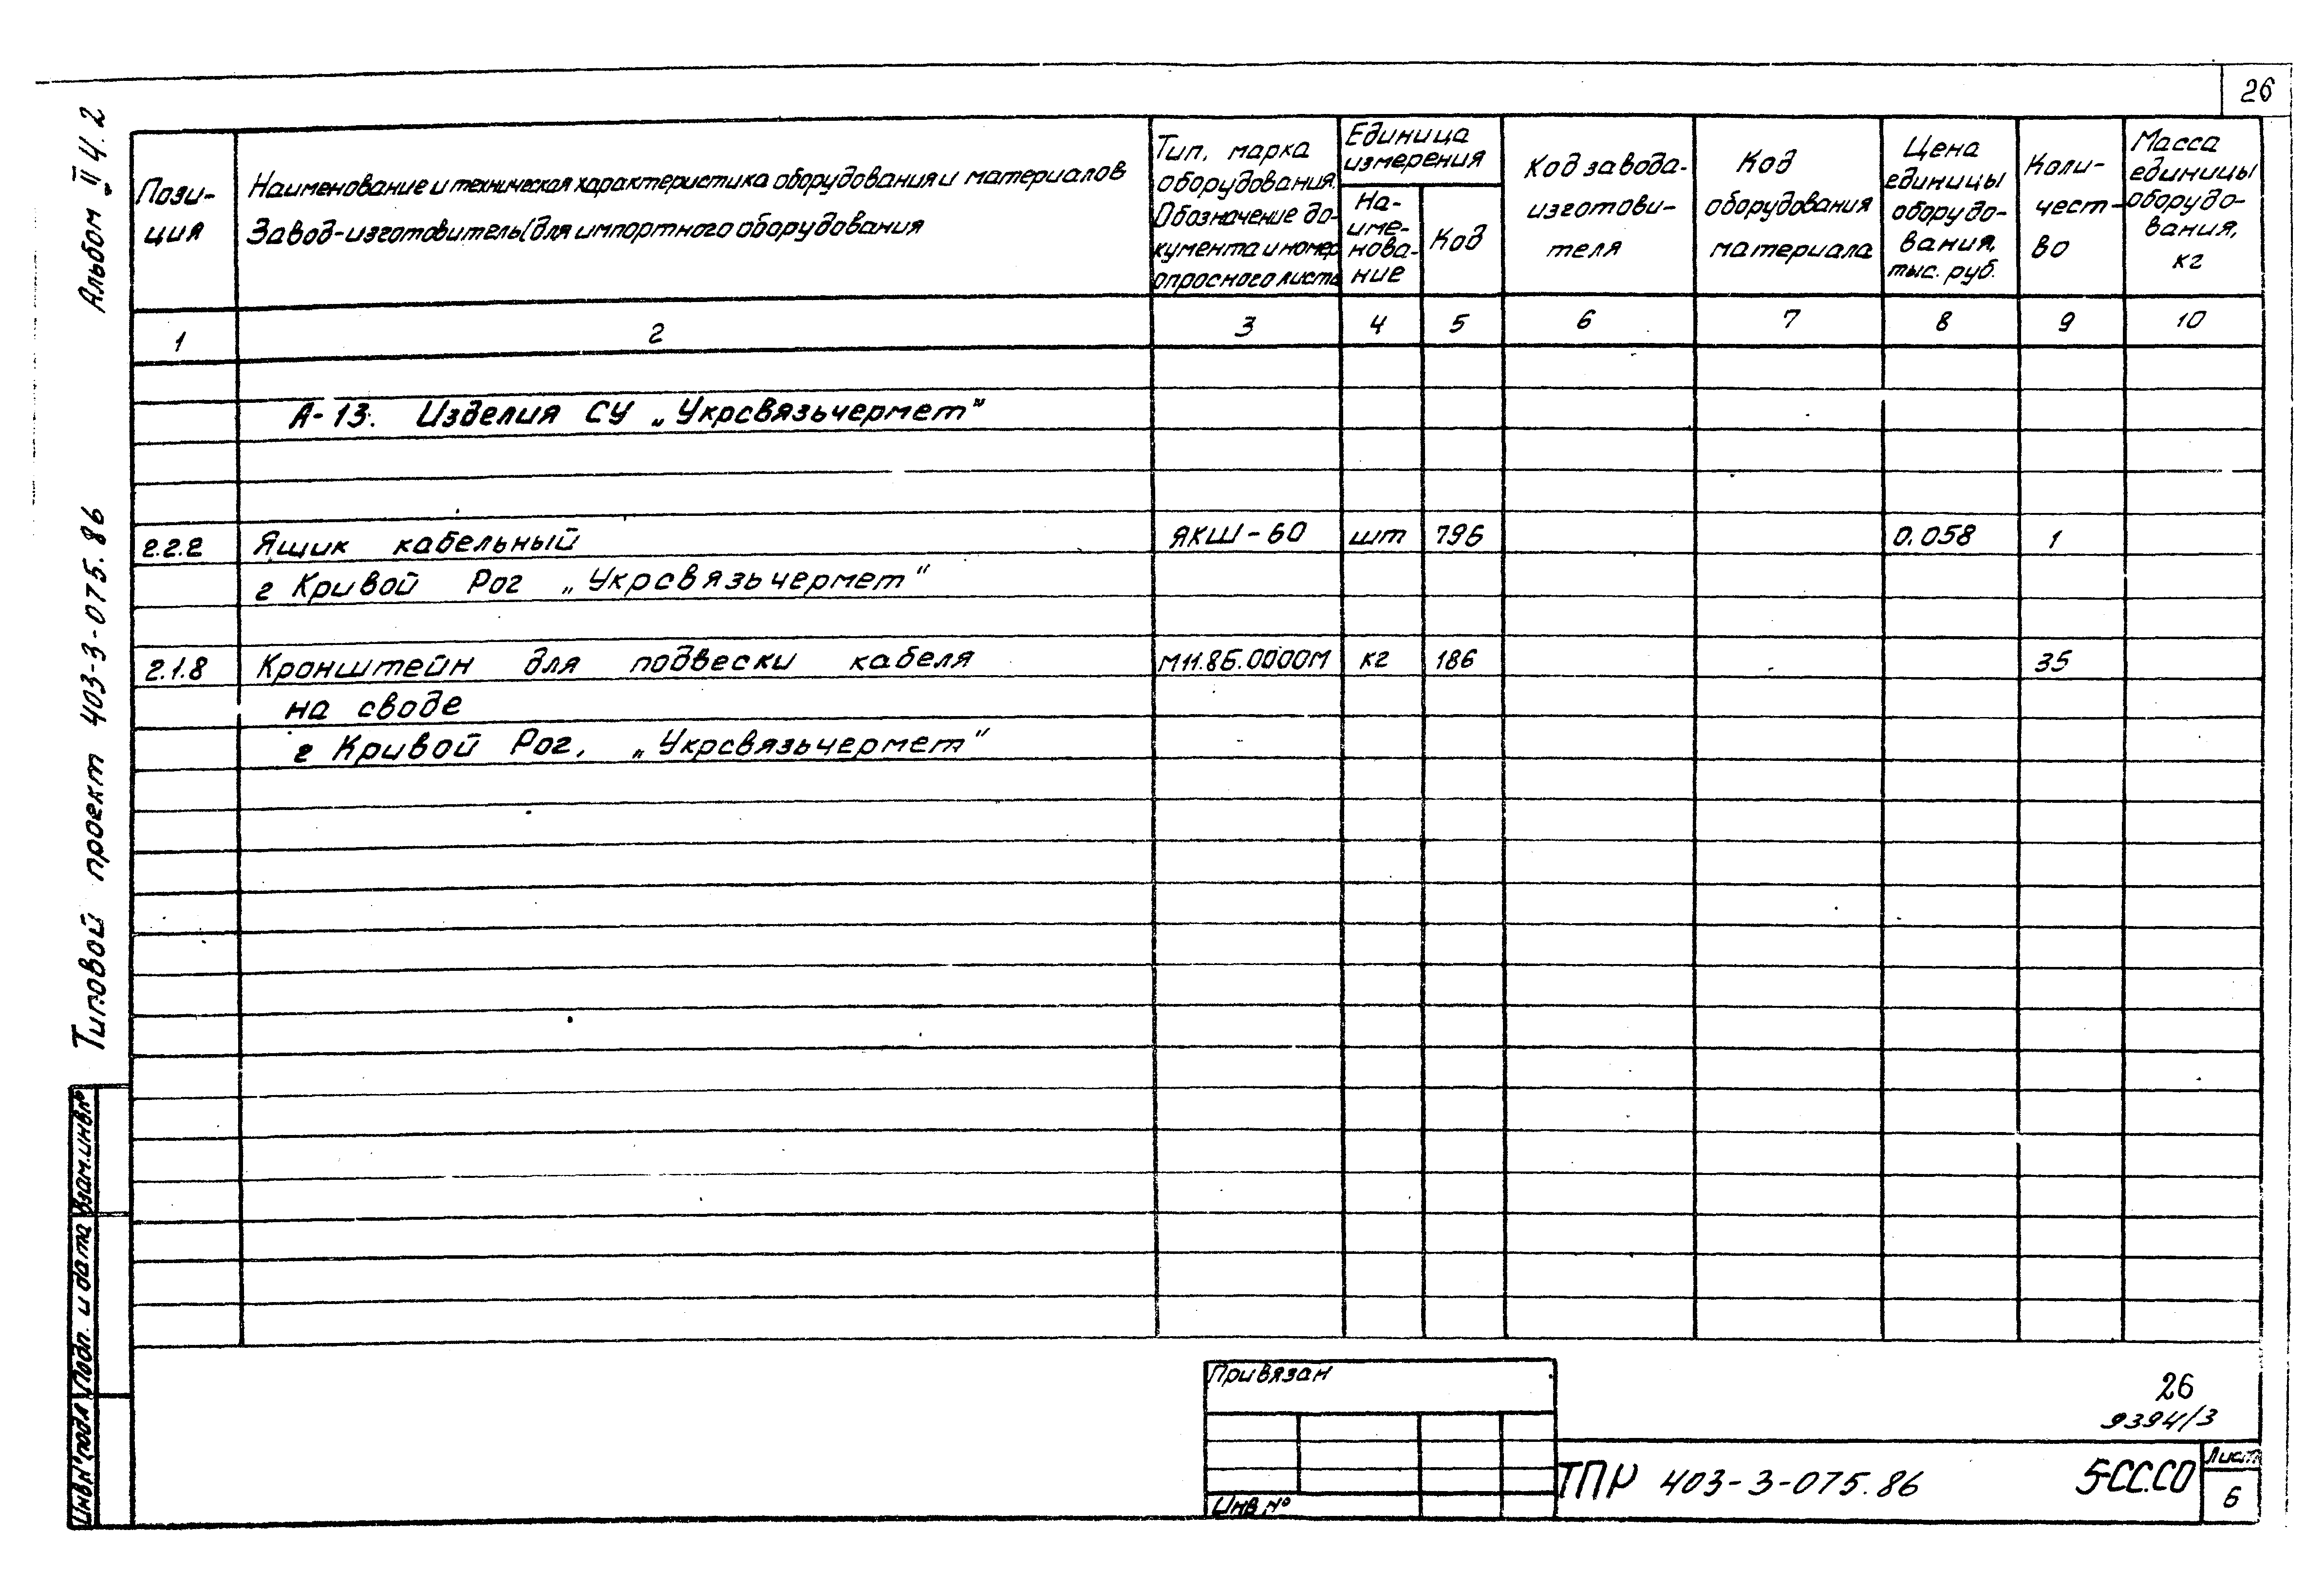 26
Альбом II ч. 2
Типовой проект 403-3-075.86
Пози-
ция
Наименование и техническая характеристика оборудования и материалов
Завод-изготовитель (для импортного оборудования
Тип, марка
оборудования.
Обозначение до-
кумента и номер
опросного листа
Единица
измерения
На-
име-
нова-
ние
Код
Код завода-
изготови-
теля
Код
оборудования
материала
Цена
единицы
оборудо-
вания,
тыс. руб.
Коли-
чест-
во
Масса
единицы
оборудо-
вания,
кг
1 2 3 4 5 6 7 8 9 10
А-13. Изделия СУ „Укрсвязьчермет"
2.2.2 Ящик кабельный ЯКШ-60 шт 796 0.058 1
г Кривой Рог „Укрсвязьчермет"
2.1.8 Кронштейн для подвески кабеля М11.86.0000М кг 186 35
на своде
г Кривой Рог, „Укрсвязьчермет"
Взам.инв.№
Подп. и дата
Инв.№ подл
Привязан
Инв №
26
9394/3
ТПР 403-3-075.86 5-СС.СО
Лист
6